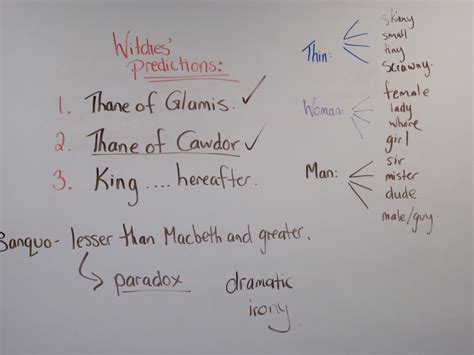 Witches'
Predictions:
1. Thane of Glamis. ✓
2. Thane of Cawdor ✓
3. King .... hereafter.
Banquo - lesser than Macbeth and greater.
paradox
dramatic
irony
Thin:
skinny
small
tiny
scrawny.
Woman:
female
lady
whore
girl
Man:
sir
mister
dude
male/guy.